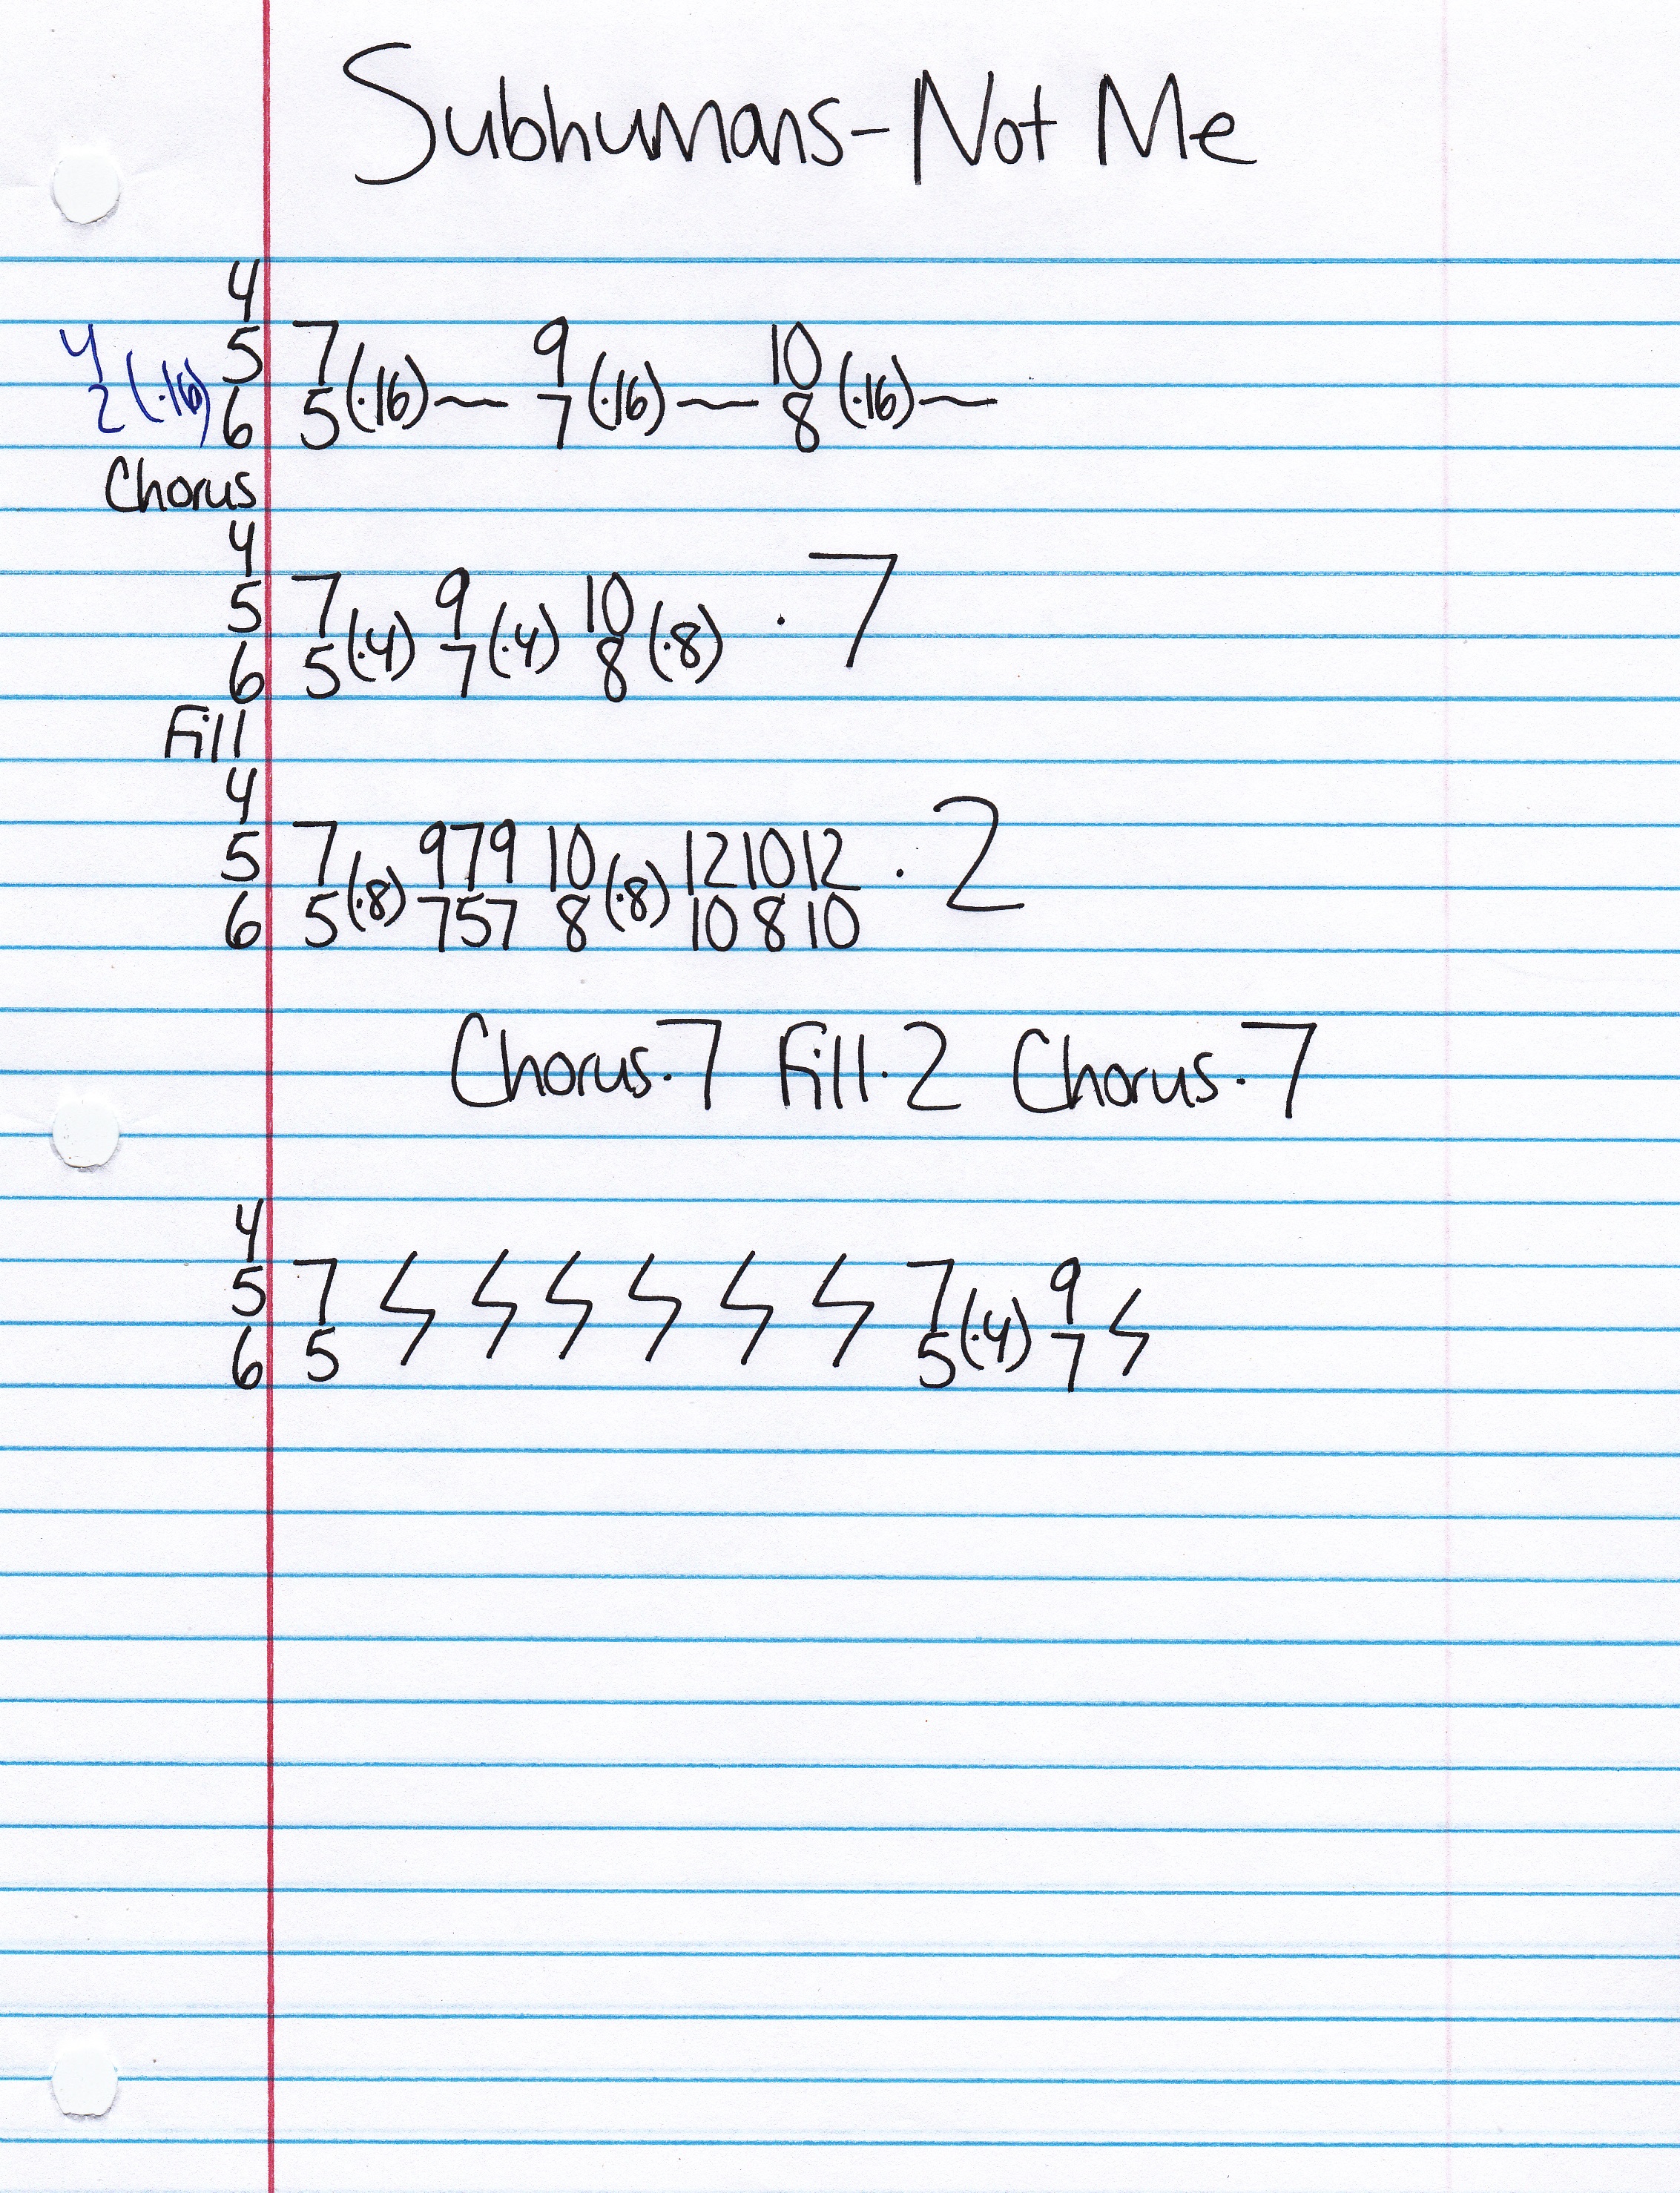 Subhumans - Not Me
4
4 5 7 9 10
2 (·16) 6 5 (·16) — 7 (·16) — 8 (·16) —
Chorus
4
5 7 9 10
6 5 (·4) 7 (·4) 8 (·8) · 7
Fill
4
5 7 9 7 9 10 12 10 12
6 5 (·8) 7 5 7 8 (·8) 10 8 10 · 2
Chorus·7 Fill·2 Chorus·7
4
5 7 7 9
6 5 5 (·4) 7